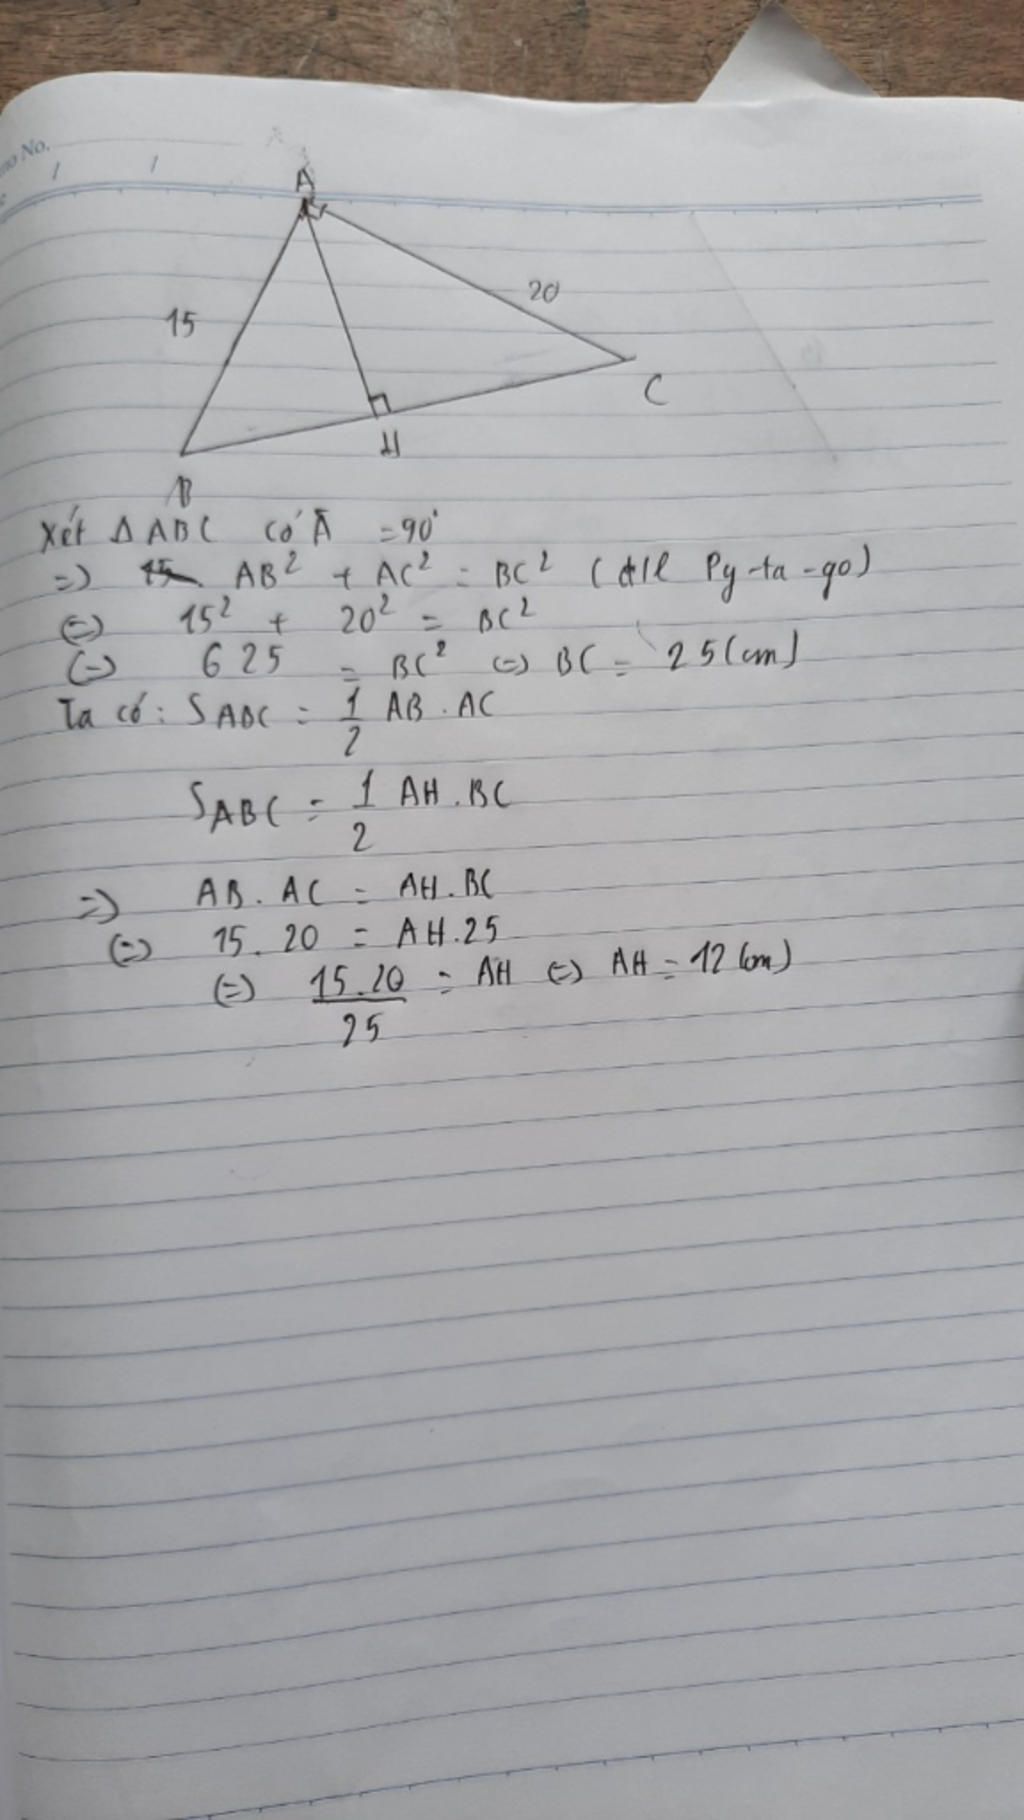 No.
A
15
20
C
H
B
Xét Δ ABC có Â = 90°
=) AB² + AC² = BC² (đ/l Py-ta-go)
(=) 15² + 20² = BC²
(=) 625 = BC² (=) BC = 25 (cm)
Ta có: S ABC = 1/2 AB . AC
S ABC = 1/2 AH . BC
=) AB . AC = AH . BC
(=) 15 . 20 = AH . 25
(=) 15 . 20 / 25 = AH (=) AH = 12 (cm)